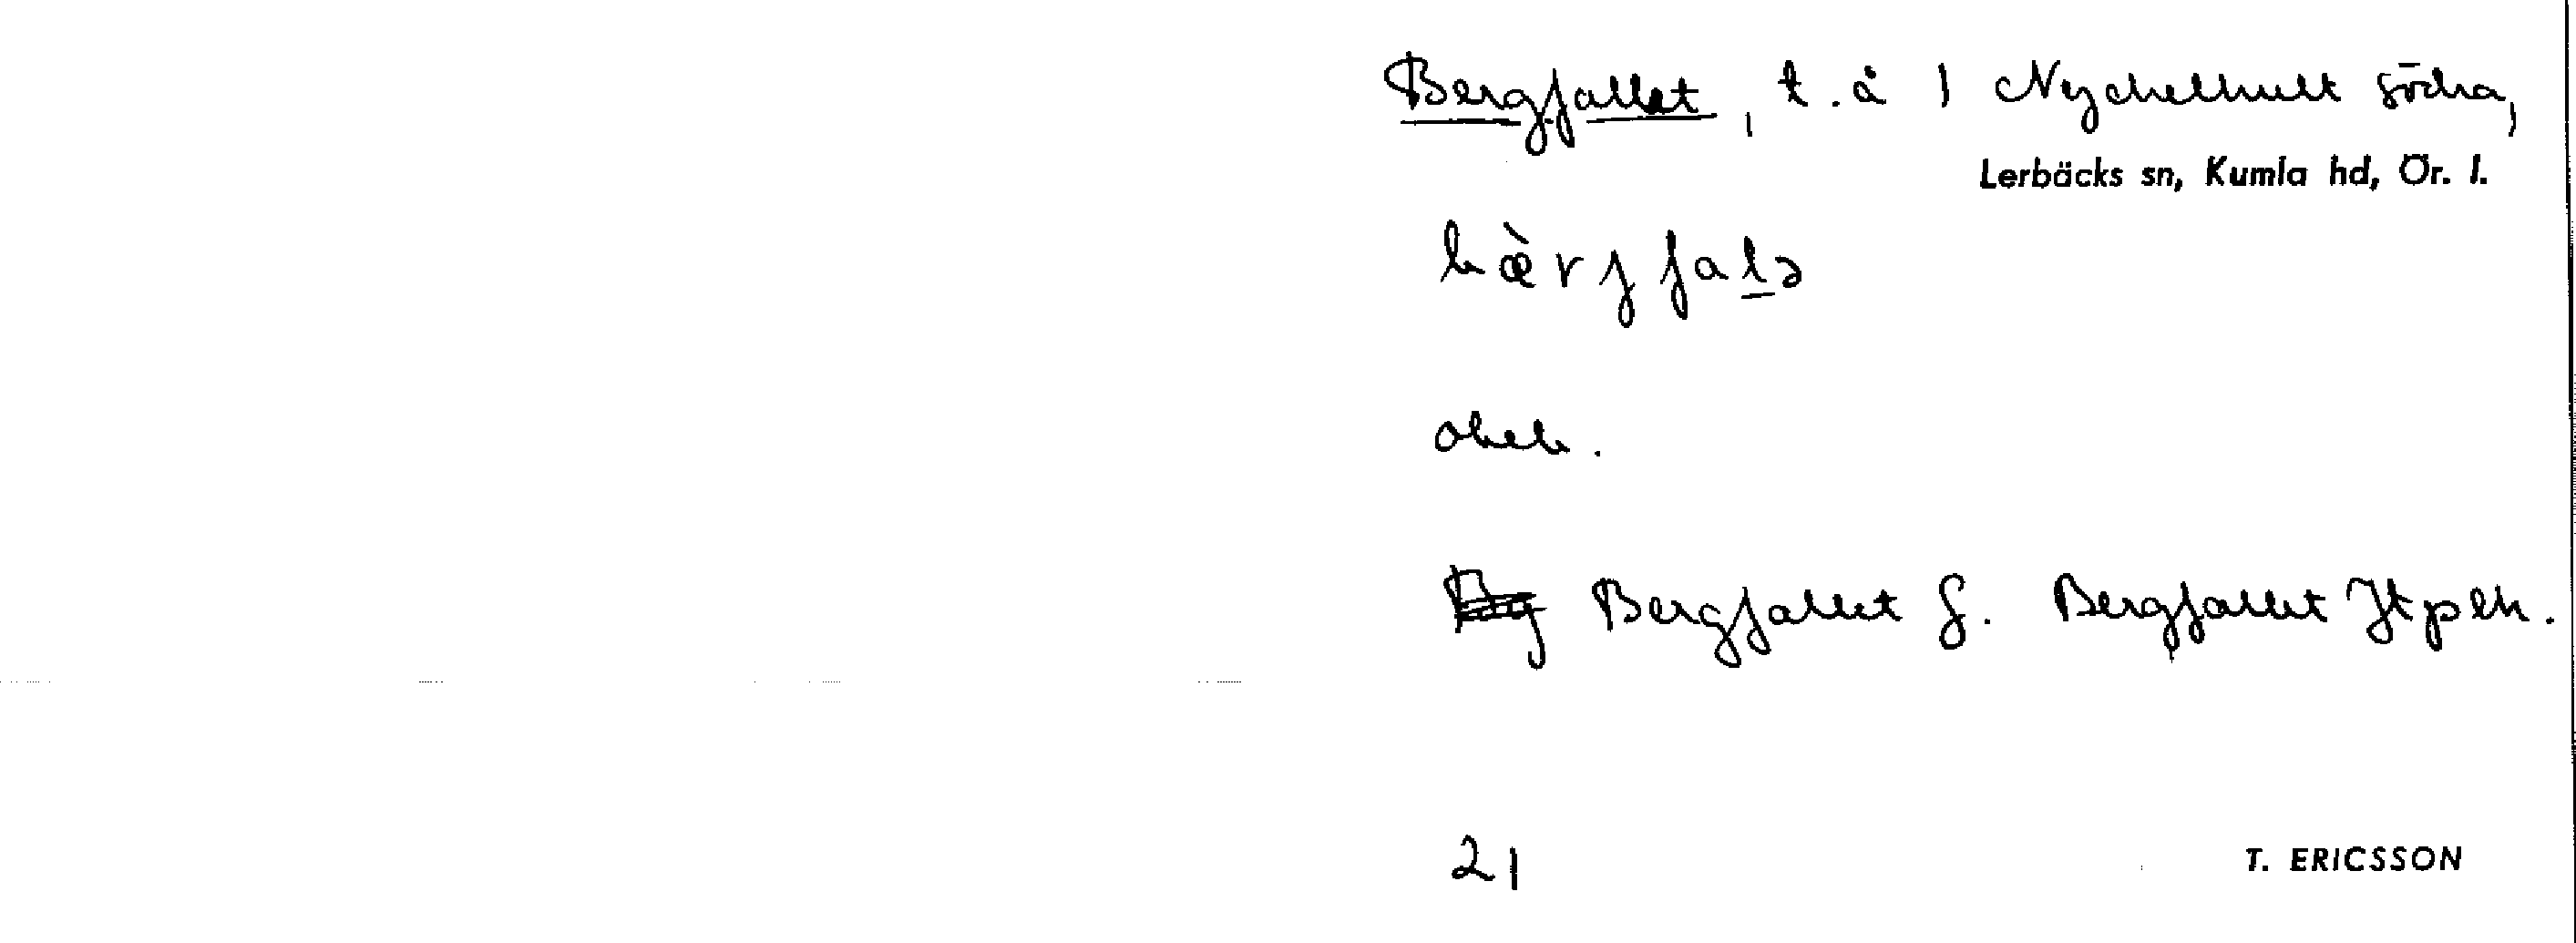 Bergfallet, t. å 1 Nyckelhult södra,
Lerbäcks sn, Kumla hd, Ör. l.
bæ̀rjfalə
obeb.
Bergfallet G. Bergfallet Jtpek.
21
T. ERICSSON